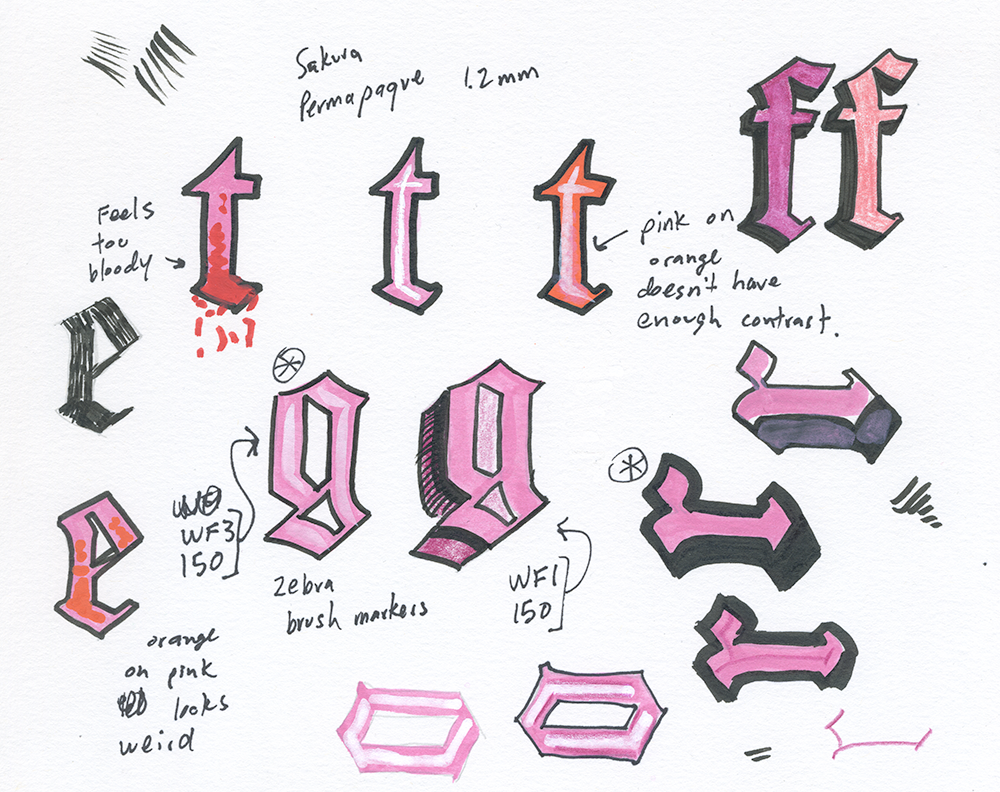 Sakura
Permapaque 1.2mm
ff
t t t
Feels
too
bloody
pink on
orange
doesn't have
enough contrast.
e
g g
WF3
150
zebra
brush markers
WF1
150
r
r
r
e
orange
on pink
looks
weird
o o